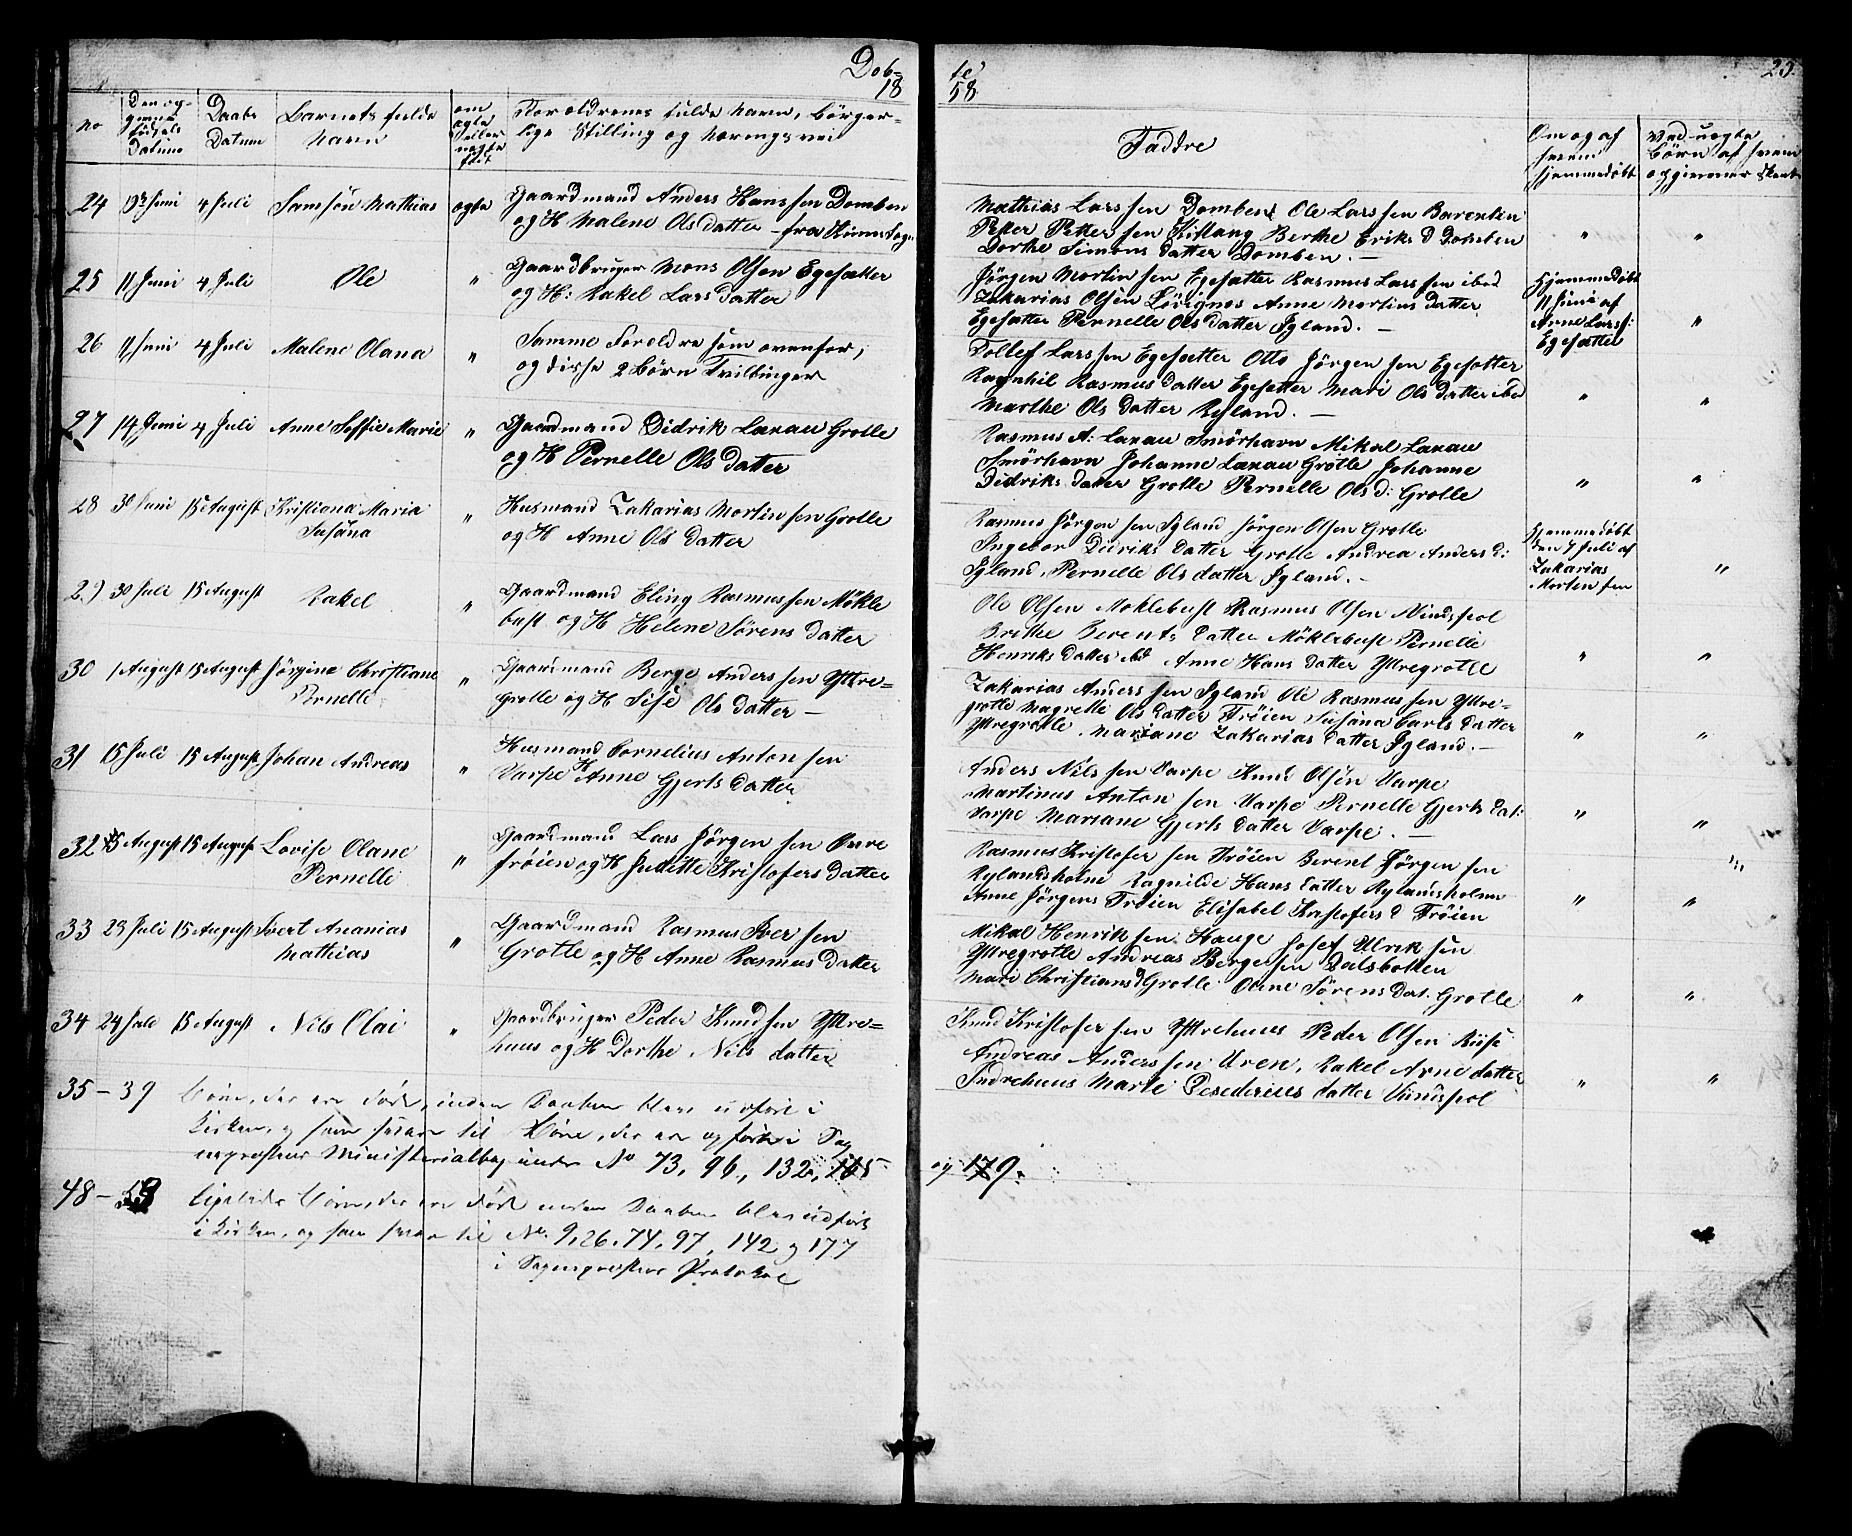 Döb= te'
18 58
25.
no
Den og-
Födsels
Datum
Daabs
Datum
Barnets fulde
Navn
om
ægte
eller
uægte
född
Foröldrenes fulde Navn, börger-
lige Stilling og Næringsvei
Faddre
Om og af
hvem
hjemmedöbt
Ved uægte
Börn af hvem
24 4 Juli Samsön Mathias ægte
Gaardmand Anders Hans sen Domben
og H Malene Ols datter - fra Kinns Sogn
Mathias Lars sen Domben Ole Lars sen Barentin
Peter Petter sen Berthe Eriks D Domben
Dorthe Simons datter Domben. -
" "
25 11 Juni 4 Juli Ole "
Gaardbruger Mons Olsen Egesætter
og H: Rakel Lars datter
Jörgen Mortin sen Egesætter Rasmus Lars sen ibed
Zakarias Olsen Anne Mortins datter
Egesætter Pernelle Ols datter Igland. -
Hjemmedöbt
11 Juni af
Arne Larss:
Egesætter
"
26 11 Juni 4 Juli Malene Olana "
Samme Foröldre som ovenfor,
og disse 2 Börn Tvillinger
Tollef Lars sen Egesætter Otto Jörgen sen Egesætter
Ragnhil Rasmus datter Egesætter Mari Ols datter ibed
Marthe Ols datter Ryland. -
" "
27 14 Juni 4 Juli Anne Soffie Marie "
Gaardmand Didrik Lanau Grotle
og H Pernelle Ols datter
Rasmus A: Lanau Smörhavn Mikal Lanau
Smörhavn Johanne Lanau Grotle Johanne
Didriks datter Grotle Pernelle Ols d: Grotle
" "
28 30 Juni 15 August Kristiana Maria
Susana
"
Husmand Zakarias Mortin sen Grotle
og H Anne Ols datter
Rasmus Jörgen sen Igland Jörgen Olsen Grotle
Ingebor Didriks datter Grotle Andrea Anders d:
Igland, Pernelle Ols datter Igland. -
Hjemmedöbt
den 7 Juli af
Zakarias
Morten sen
"
29 30 Juli 15 August Rakel "
Gaardmand Eling Rasmus sen Mökle
bust og H Helene Sörens datter
Ole Olsen Moklebust Rasmus Olsen
Brethe Berents datter Möklebust Pernelle
Henriks datter ibd Anne Hans datter Yttregrotle
" "
30 1 August 15 August Jörgine Christiane
Pernelle
"
Gaardmand Berge Anders sen Yttre=
grotle og H Sise Ols datter -
Zakarias Anders sen Igland Ole Rasmus sen Yttre-
grotle Magrette Ols datter Fröien Susana Carls datter
Yttregrotle. Mariane Zakarias datter Igland. -
" "
31 15 Juli 15 August Johan Andreas "
Husmand Cornelius Anton sen
Varpe H Anne Gjerts datter
Anders Nils sen Varpe Knud Olsen Varpe
Martinus Anton sen Varpe Pernelle Gjerts dat:
Varpe Mariane Gjerts datter Varpe. -
" "
32 15 August Lovise Olane
Pernelle
"
Gaardmand Lars Jörgen sen Övre
fröien og H Juditte Kristofers datter
Rasmus Kristofer sen Fröien Berent Jörgen sen
Rylandsholm Ragnilde Hans datter Rylandsholm
Anne Jörgens Fröien Elisabel Kristofers d Fröien
" "
33 23 Juli 15 August Ivert Ananias
Mathias
"
Gaardmand Rasmus Iver sen
Grotle og H Anne Rasmus datter
Mikal Henrik sen Hauge Josef Ulrik sen
Yttregrotle Andreas Berge sen Dalsbotten
Mari Christians d Grotle Oline Sörens dat. Grotle
" "
34 24 Juli 15 August Nils Olai "
Gaardbruger Peder Knudsen Yttre=
huus og H Dorthe Nils datter
Knud Kristofer sen Yttrehuus Peder Olsen Rise
Andreas Anders sen Uren, Rakel Arne datter
Indrehuus Marte Desederius datter
" "
35 - 39 Börn, der ere döbt, inden Daaben blev udfört i
Kirken, og som svare til Börn, der ere opförte i Sog
nepræstens Ministerialbog under No 73, 96, 132, 165
og 179.
48 - 53 Ligeledes Börn, der ere döbt inden Daaben blev udfört
i Kirken, og som svare til No. 9, 26, 74, 97, 142 og 177
i Sognepræstens Protokol